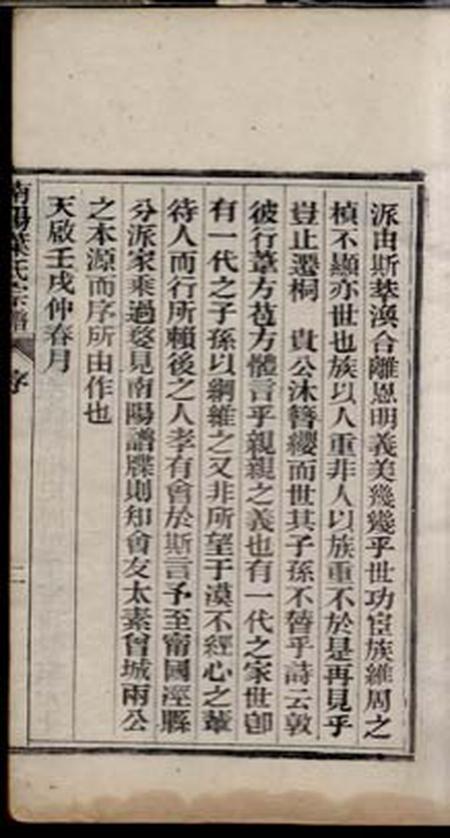 派由斯萃渙合離恩明義美幾幾乎世功宦族維周之
楨不顯亦世也族以人重非人以族重不於是再見乎
豈止遷桐　貴公沐簪纓而世其子孫不替乎詩云敦
彼行葦方苞方體言乎親親之義也有一代之家世卽
有一代之子孫以綱維之又非所望于漠不經心之輩
待人而行所賴後之人孝有會於斯言予至甯國涇縣
分派家乘過婺見南陽譜牒則知會友太素曾城兩公
之本源而序所由作也
天啟壬戌仲春月
南陽葉氏宗譜
序
二